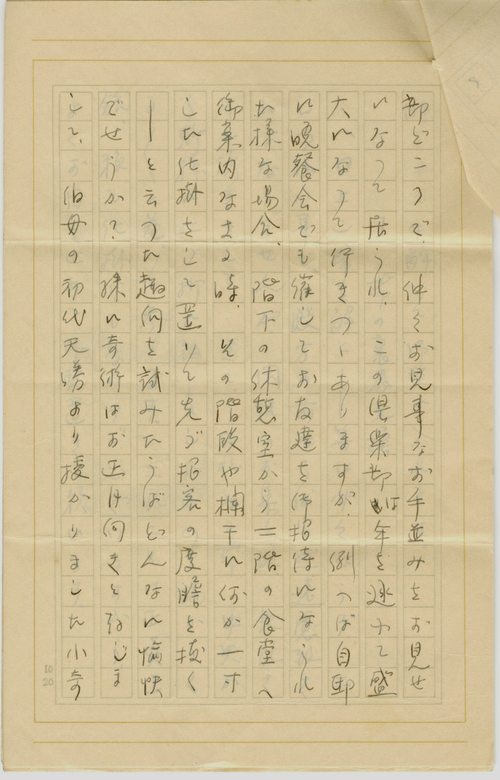 部とこつで、仲々お見事なお手並みをお見せ
になつて居られ、この倶楽部は年を逐ふて盛
大になつて行きつゝありますが、例へば自邸
に晩餐会でも催してお友達を御招待になられ
た様な場合、階下の休憩室から二階の食堂へ
御案内なさる時、その階段や欄干に何か一寸
した仕掛をして置いて先づ招客の度膽を抜く
―と云つた趣向を試みたらばどんなに愉快
でせうか？殊に奇術はお正月向きと存じま
して、お伯母の初代天勝より授かりました小奇
10
20